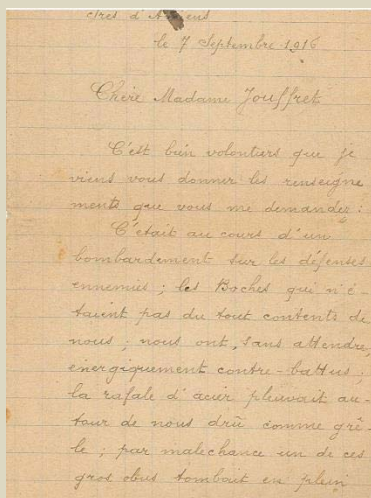 d'Amiens
le 7 Septembre 1916
Chère Madame Jouffret
C'est bien volontiers que je
viens vous donner les renseigne
ments que vous me demandez :
C'était au cours d'un
bombardement sur les défenses
ennemies ; les Boches qui n'é-
taient pas du tout contents de
nous ; nous ont, sans attendre,
énergiquement contre-battus ;
la rafale d'acier pleuvait au-
tour de nous drû comme grê-
le ; par malechance un de ces
gros obus tombait en plein